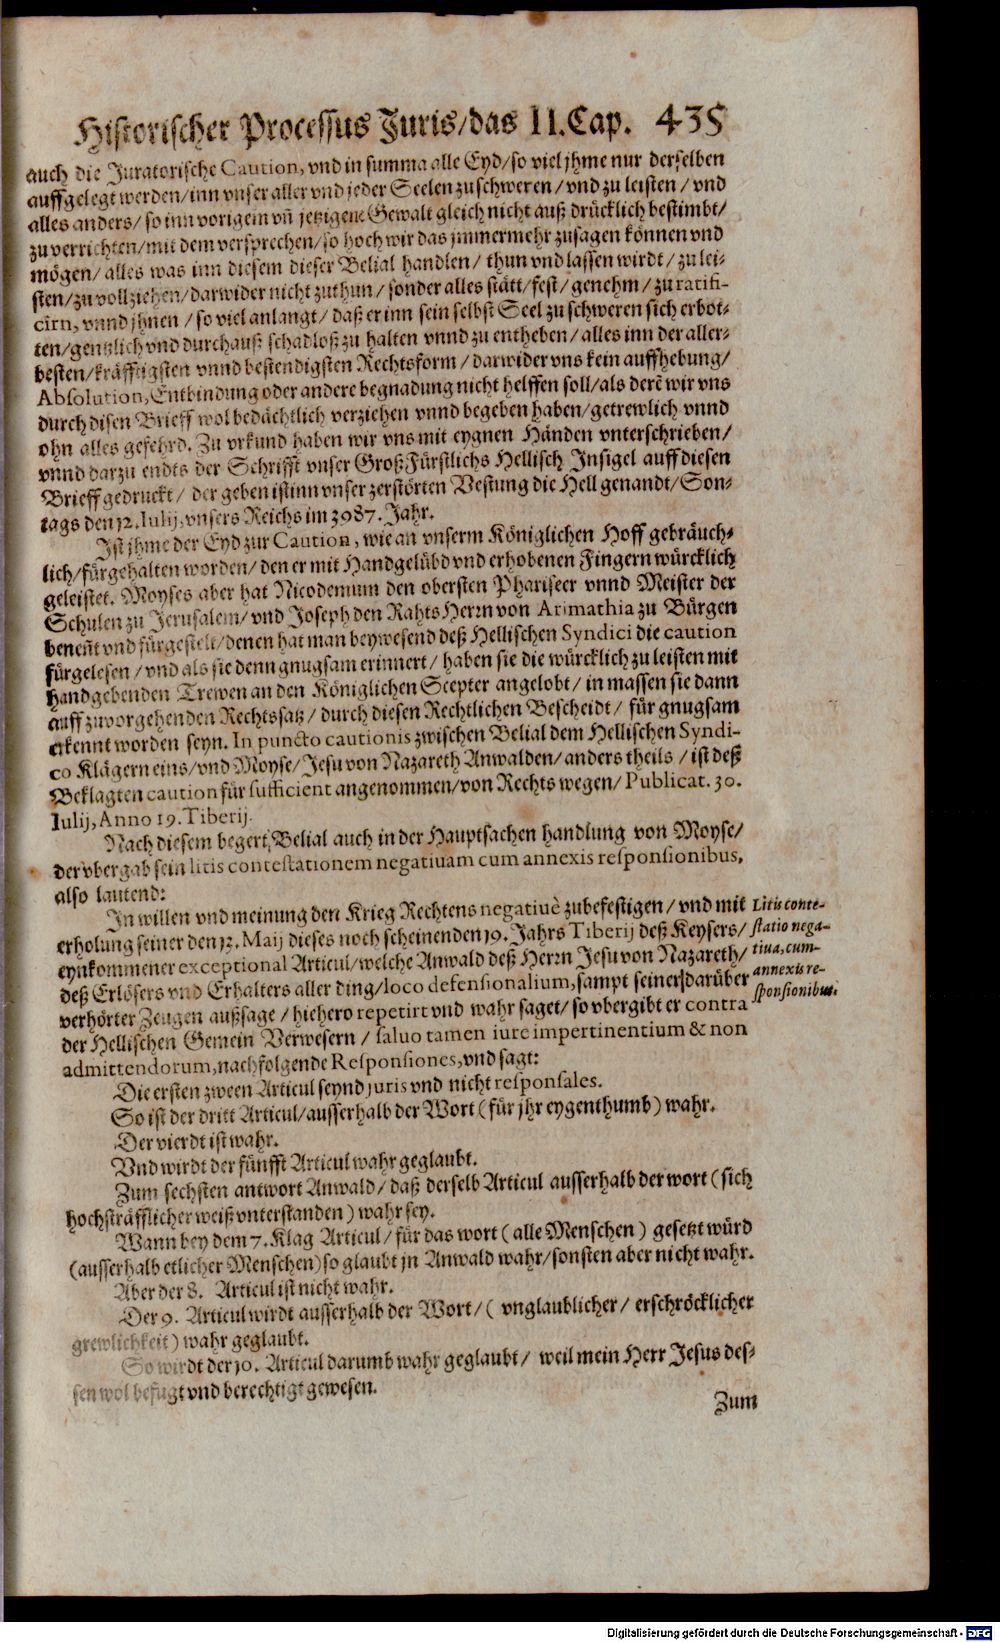 Historischer Processus Juris/das II.Cap. 435
auch die Juratorische Caution, vnd in summa alle Eyd/so viel jhme nur derselben
auffgelegt werden/inn vnser aller vnd jeder Seelen zu schweren/vnd zu leisten/vnd
alles anders/so inn vorigem vñ jetzigem Gewalt gleich nicht auß drücklich bestimbt/
zu verrichten/mit dem versprechen/so hoch wir das jmmermehr zusagen können vnd
mögen/alles was inn diesem dieser Belial handlen/thun vnd lassen wirdt/zu lei-
sten/zu vollziehen/darwider nicht zuthun/sonder alles stätt/fest/genehm/zu ratifi-
cirn, vnnd jhnen/so viel anlangt/daß er inn sein selbst Seel zu schweren sich erbot-
ten/gentzlich vnd durchauß schadloß zu halten vnnd zu entheben/alles inn der aller-
besten/kräfftigsten vnnd bestendigsten Rechtsform/darwider vns kein auffhebung/
Absolution, Entbindung oder andere begnadung nicht helffen soll/als derẽ wir vns
durch disen Brieff wolbedächtlich verziehen vnnd begeben haben/getrewlich vnnd
ohn alles gefehrd. Zu vrkund haben wir vns mit eygnen Händen vnterschrieben/
vnnd darzu endts der Schrifft vnser GroßFürstlichs Hellisch Insigel auff diesen
Brieff gedruckt/der geben ist inn vnser zerstörten Vestung die Hell genandt/Son-
tags den 12. Iulij, vnsers Reichs im 3987. Jahr.
Ist jhme der Eyd zur Caution, wie an vnserm Königlichen Hoff gebräuch-
lich/fürgehalten worden/den er mit Handgelübd vnd erhobenen Fingern würcklich
geleistet. Moyses aber hat Nicodemum den obersten Phariseer vnnd Meister der
Schulen zu Jerusalem/vnd Joseph den Rahts Herrn von Arimathia zu Bürgen
beneñt vnd fürgestelt/denen hat man beywesend deß Hellischen Syndici die caution
fürgelesen/vnd als sie denn gnugsam erinnert/haben sie die würcklich zu leisten mit
handgebenden Trewen an den Königlichen Scepter angelobt/in massen sie dann
auff zuvorgehenden Rechtssatz/durch diesen Rechtlichen Bescheidt/für gnugsam
erkennt worden seyn. In puncto cautionis zwischen Belial dem Hellischen Syndi-
co Klägern eins/vnd Moyse/Jesu von Nazareth Anwalden/anders theils/ist deß
Beklagten caution für sufficient angenommen/von Rechts wegen/Publicat. 30.
Iulij, Anno 19. Tiberij.
Nach diesem begert Belial auch in der Hauptsachen handlung von Moyse/
der vbergab sein litis contestationem negatiuam cum annexis responsionibus,
also lautend:
In willen vnd meinung den Krieg Rechtens negatiuè zubefestigen/vnd mit
erholung seiner den 12. Maij dieses noch scheinenden 19. Jahrs Tiberij deß Keysers/
eynkommener exceptional Articul/welche Anwald deß Herrn Jesu von Nazareth/
deß Erlösers vnd Erhalters aller ding/loco defensionalium, sampt seiner darüber
verhörter Zeugen außsage/hiehero repetirt vnd wahr saget/so vbergibt er contra
der Hellischen Gemein Verwesern/saluo tamen iure impertinentium & non
admittendorum, nachfolgende Responsiones, vnd sagt:
Litis conte-
statio nega-
tiua, cum
annexis re-
sponsionibus.
Die ersten zween Articul seynd juris vnd nicht responsales.
So ist der dritt Articul/ausserhalb der Wort (für jhr eygenthumb) wahr.
Der vierdt ist wahr.
Vnd wirdt der fünfft Articul wahr geglaubt.
Zum sechsten antwort Anwald/daß derselb Articul ausserhalb der wort (sich
hochsträfflicher weiß vnterstanden) wahr sey.
Wann bey dem 7. Klag Articul/für das wort (alle Menschen) gesetzt würd
(ausserhalb etlicher Menschen) so glaubt jn Anwald wahr/sonsten aber nicht wahr.
Aber der 8. Articul ist nicht wahr.
Der 9. Articul wirdt ausserhalb der Wort/(vnglaublicher/erschröcklicher
grewlichkeit) wahr geglaubt.
So wirdt der 10. Articul darumb wahr geglaubt/weil mein Herr Jesus des-
sen wol befugt vnd berechtigt gewesen.
Zum
Digitalisierung gefördert durch die Deutsche Forschungsgemeinschaft - DFG